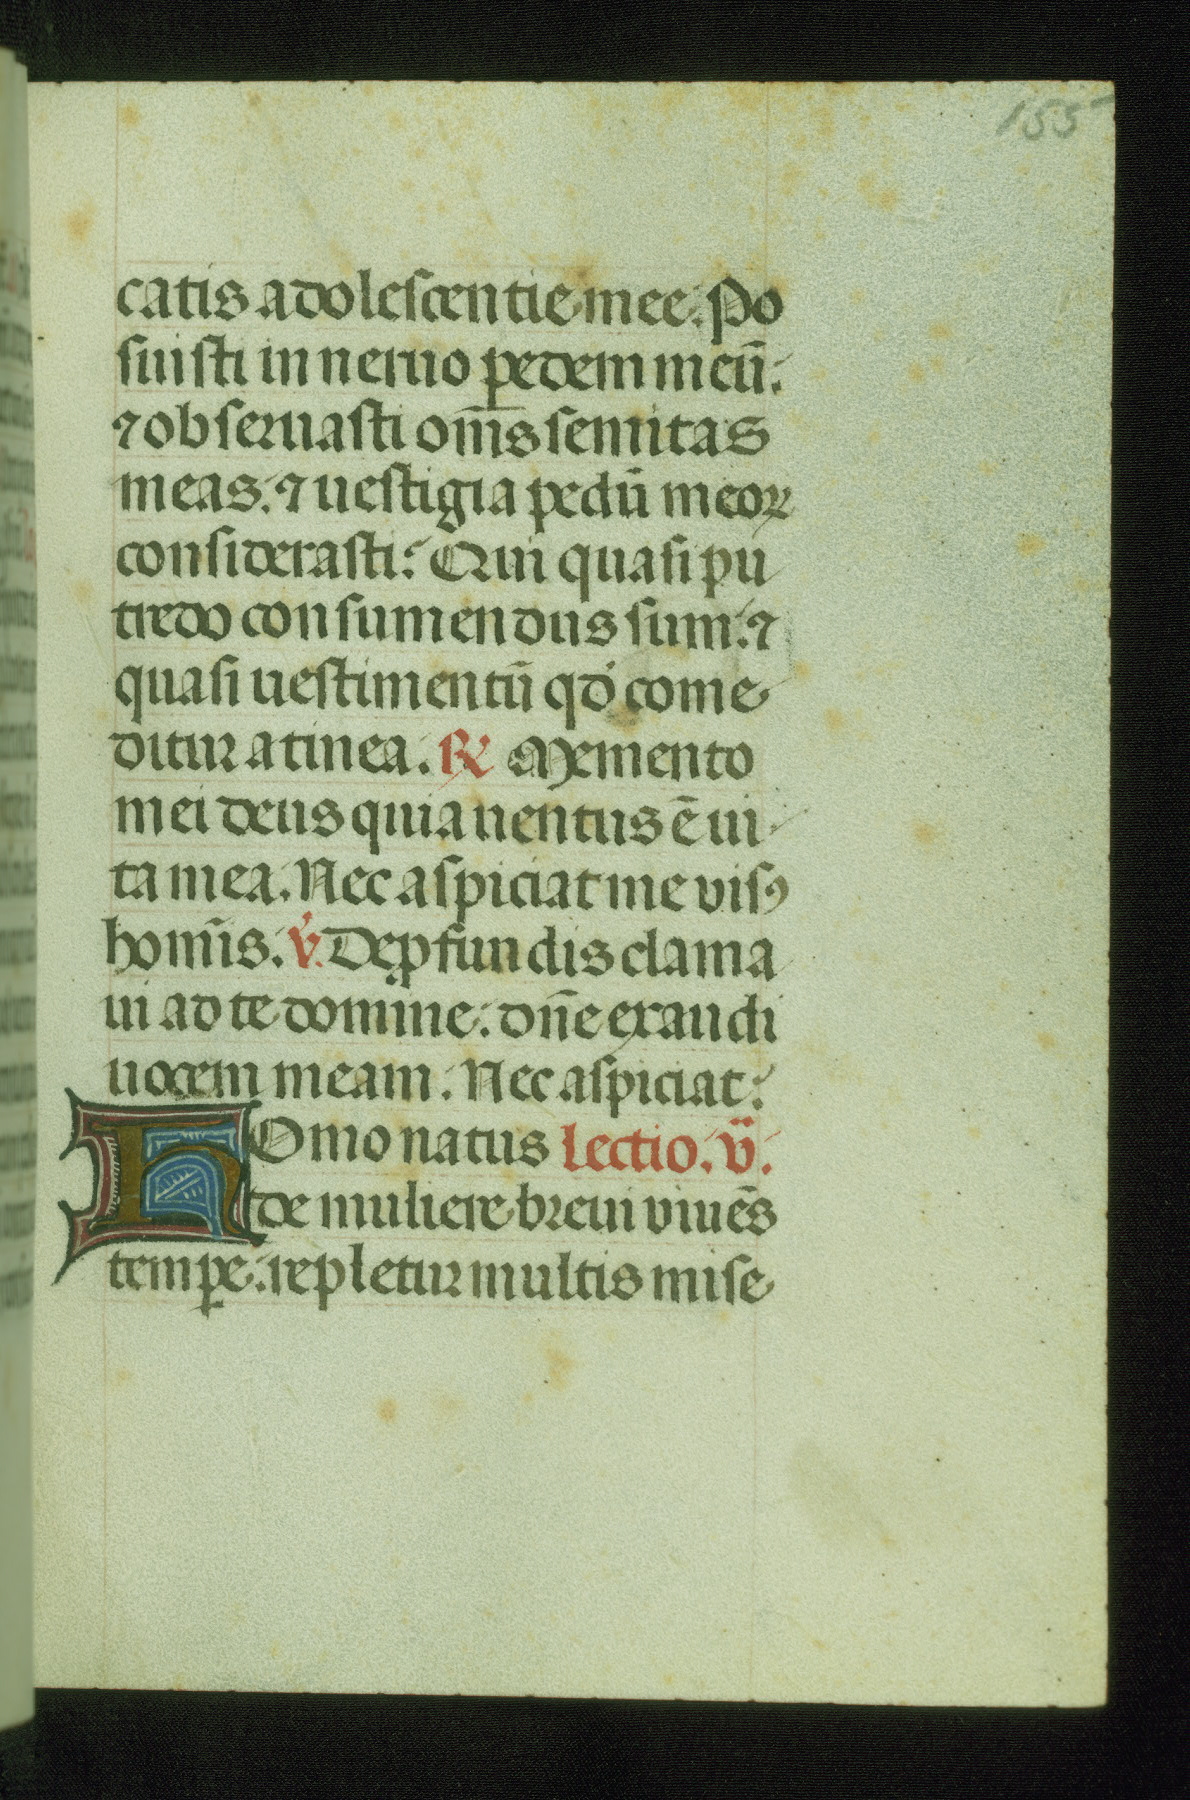 155
catis adolescentie mee. Po
suisti in neruo pedem meū.
⁊ obseruasti om̄s semitas
meas. ⁊ uestigia pedū meoꝝ
considerasti. Qui quasi pu
tredo consumendus sum. ⁊
quasi uestimentū qd́ come
ditur a tinea. ℟ Memento
mei deus quia uentus ē ui
ta mea. Nec aspiciat me visꝰ
homīs. ℣. De ꝓfundis clama
ui ad te domine. dn̄e exaudi
uocem meam. Nec aspiciat.
HOmo natus lectio. v̈.
de muliere breui viuēs
temꝑe. repletur multis mise